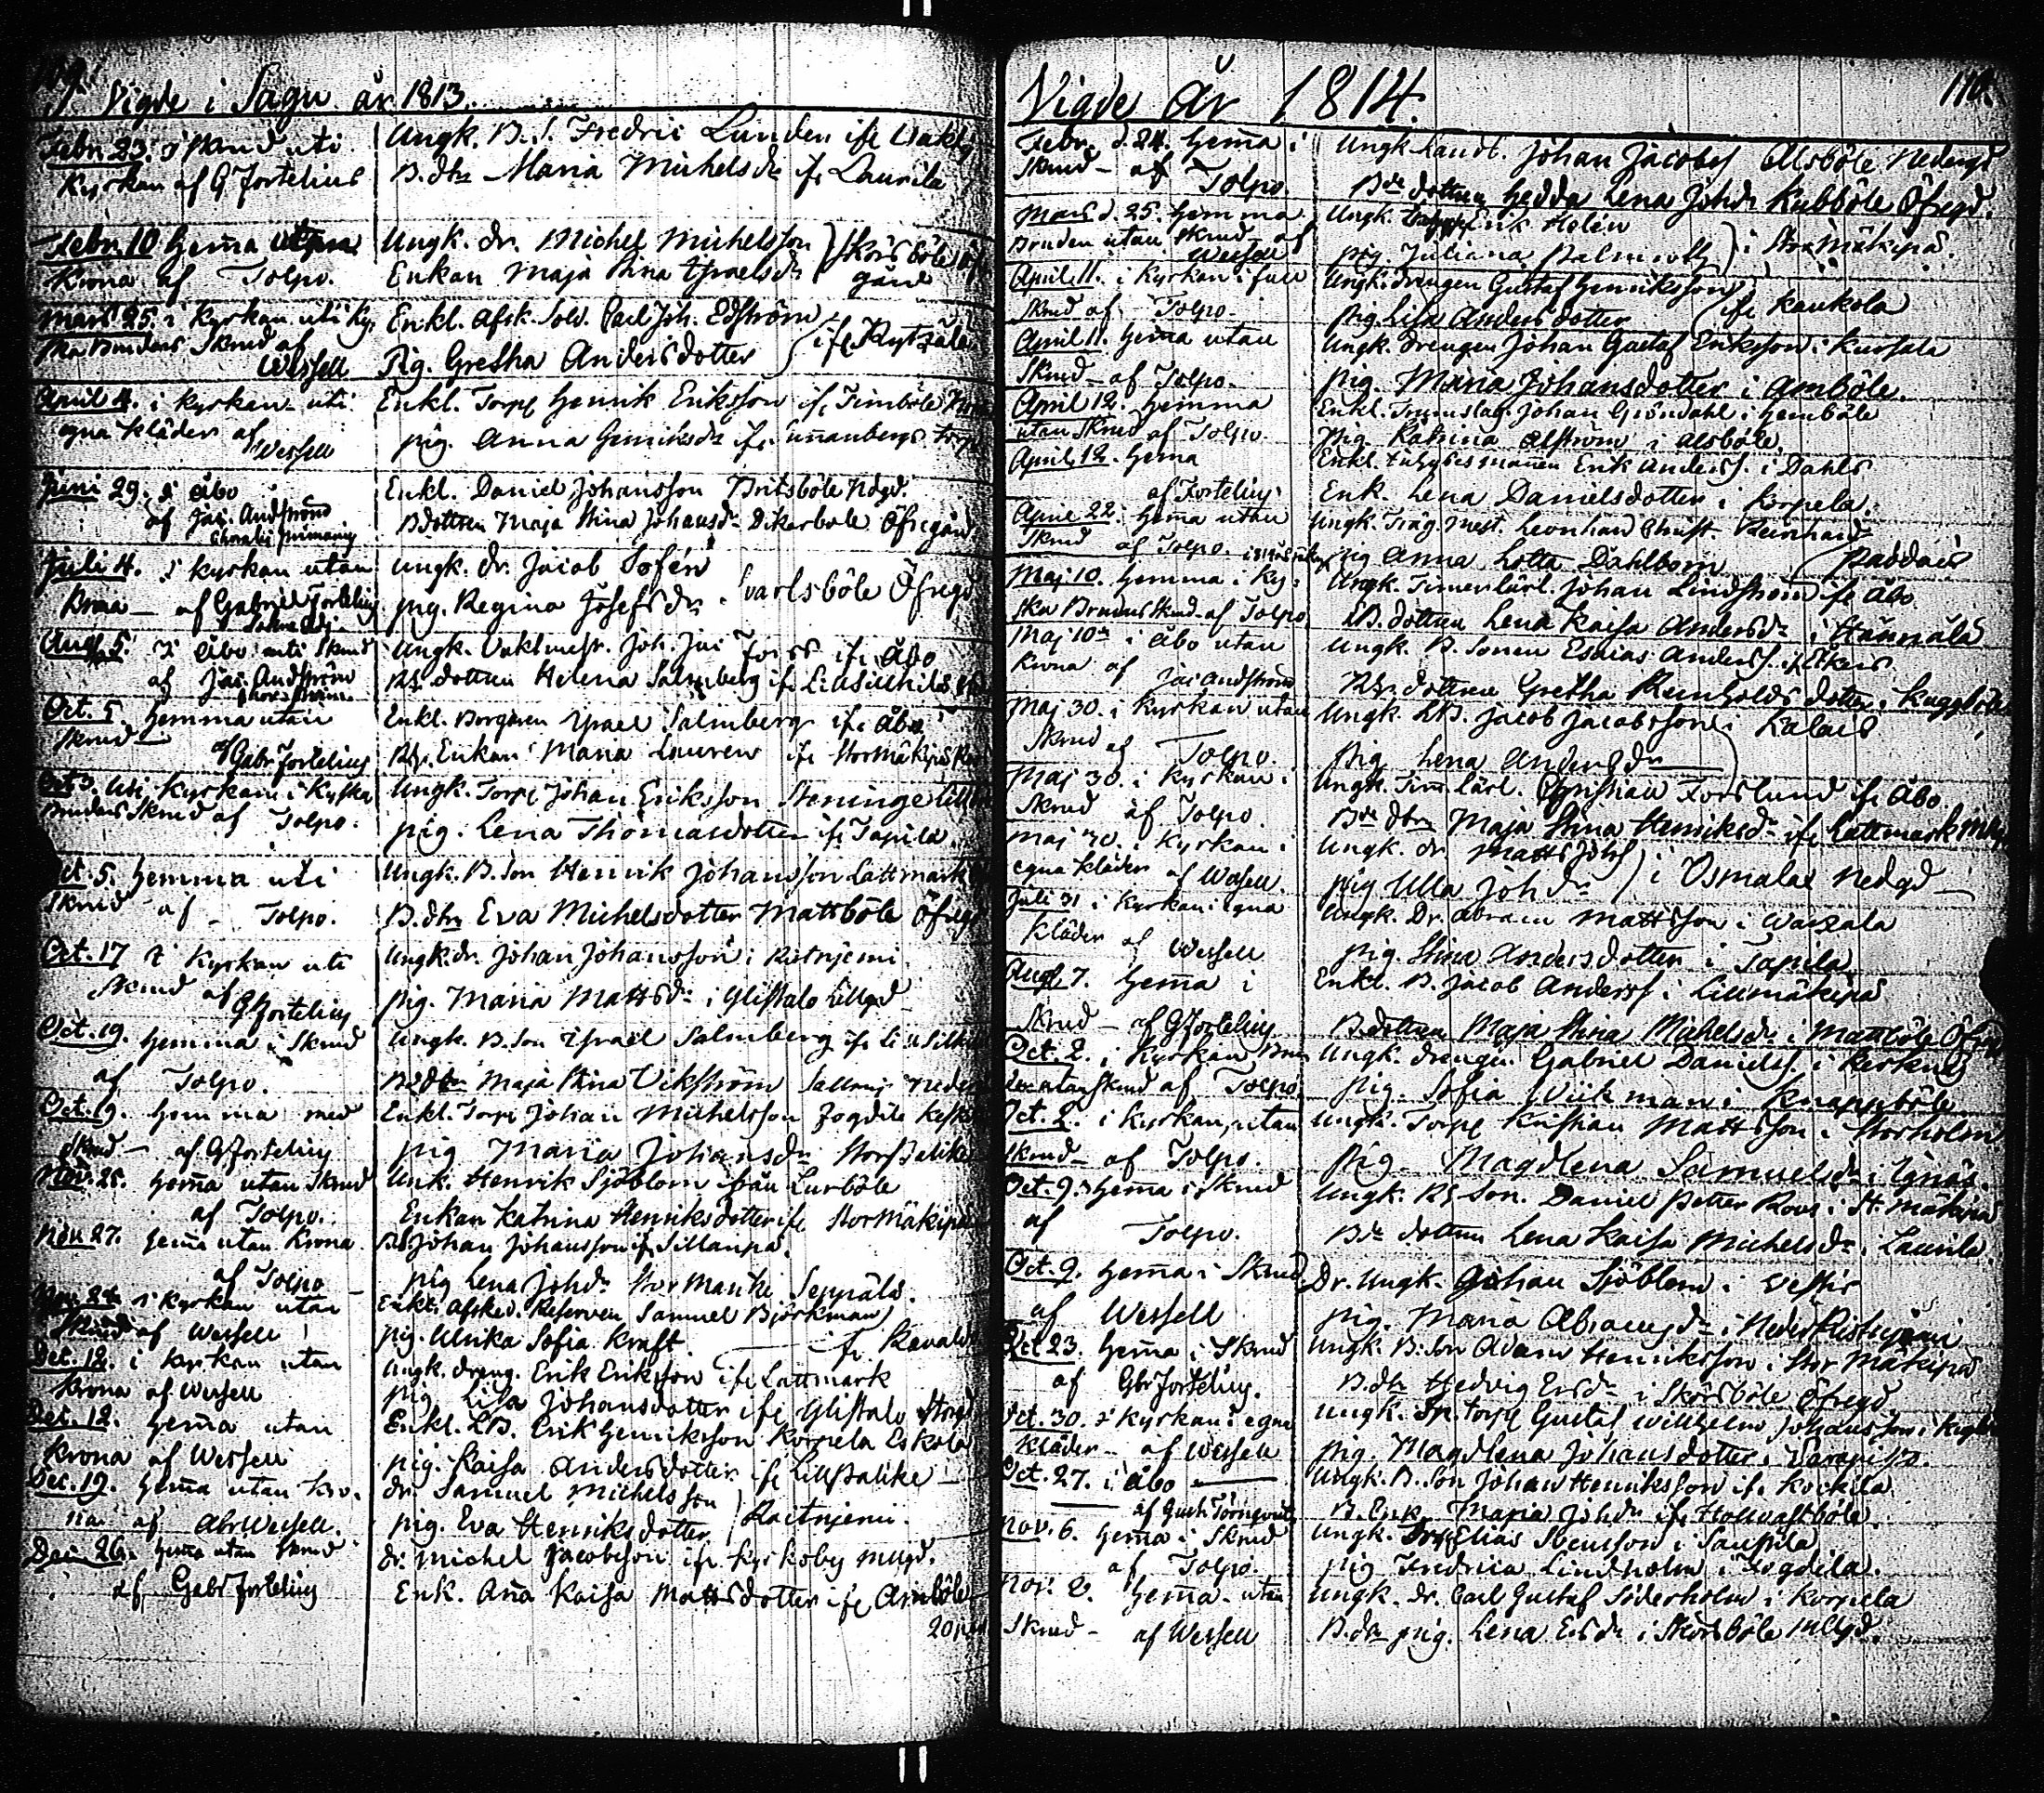 109.
Vigde i Sagu år 1813.
Febr. 23. i Skrud uti
Kyrkan af G Fortelius
Ungk. B. S. Fredric Lunden ife
B. dtr Maria Michelsdr ife Laurila
Febr. 10 Hem̄a utan
Krona af Tolpo.
Ungk. dr. Michel Michelsson
Enkan Maja Stina Israelsdr
Skörsböle
gård
Mars 25. i Kyrkan uti Ky.
ska Brudens Skrud af
Wessell
Enkl. Afsk. Sold. Carl Joh. Edström
Pig. Gretha Andersdotter
ife Rytzälä
April 4. i Kyrkan uti
egna kläder af
Wessell
Enkl. Torp Henrik Eriksson ife Timböle
pig. Anna Henriksdr ife
Juni 29. i Åbo
af Jac. Andström
Enkl. Daniel Johansson Britsböle Ndgd.
Bdottren Maja Stina Johansdr Dikarböle Öfregård
Juli 4. i kyrkan utan
Krona — af Gabriel Fortelius
Ungk. dr. Jacob Sofén
pig. Regina Josefsdr
Karlsböle Öfregd
Aug. 5. i Åbo uti Skrud
af Jac. Andström
Ungk. Vaktmestr. Joh. Jac Forss ife Åbo
dottren Helena Salmberg ife
Oct. 5. hemma utan
skrud —
af Gabr Fortelius
Enkl. Borgaren Israel Salmberg ife Åbo
Enkan Maria Lauren ife StorMäkipä
Oct 3. uti Kyrkan i Kyrka
Brudens Skrud af Tolpo.
Ungk. Torp Johan Eriksson Steninge
pig. Lena Thomasdotter ife Tapila.
Oct. 5. Hemma uti
Skrud af Tolpo.
Ungk. B. Son Henrik Johansson Lättmark
B. dtr Eva Michelsdotter Mattböle Öfregd
Oct. 17 i Kyrkan uti
Skrud af
G Fortelius
Ungk. dr. Johan Johansson i Ristnjemi
pig. Maria Mattsdr i Glistalo Lillgd
Oct. 19. Hemma i Skrud
af Tolpo.
Ungk. B. Son Israel Salmberg ife
Maja Stina Vikström
Oct. 19. Hemma med
Skrud — af G Fortelius
Enkl. Torp Johan Michelsson Fogdila
pig Maria Johansdr Storpalike
Nov. 25. Hem̄a utan Skrud
af Tolpo.
Unk. Henrik Sjöblom från Lurböle
Enkan Katrina Henriksdotter ife StorMäkipä
Nov. 27. Hem̄a utan Krona
af Tolpo
Johan Johansson ife Sillanpä.
pig Lena Johdr Seppälä.
i Kyrkan utan
Skrud af Wessell
Enkl. Afsked. Reserven Samuel Björkman
pig. Ulrika Sofia Kraft.
ife
Dec. 12. i kyrkan utan
Krona af Wessell
Ungk. dreng. Erik Eriksson ife Lättmark
pig. Lisa Johansdotter ife Glistalo Storgd
Dec. 12. Hem̄a utan
Krona af Wessell
Enkl. LB. Erik Henriksson Korpela Eskola
pig. Kaisa Andersdotter ife Lillpalike
Dec. 19. Hem̄a utan Kro-
na af Abr Wessell.
dr. Samuel Michelsson
pig. Eva Henriksdotter
Raitnjemi.
Dec. 26. Hem̄a utan Skrud
af Gabr Fortelius
dr. Michel Jacobsson ife Kyrkoby
Enk. Ana Kaisa Mattsdotter ife Amböle
20 par
Vigde år 1814.
110.
Febr. d. 24. Hem̄a i
Skrud — af Tolpo.
Ungk Landb. Johan Jacobss Alsböle Nedergd
Bde dottren Hedda Lena Johdr Kubböle Öfregd.
Mars d. 25. Hemma
Bruden utan skrud af
Wessell
Ungk. Erik Helén
pig. Juliana Palmroth
i Stor Mäkipä.
April 11. i Kyrkan i full
Skrud af Tolpo.
Ungk. drengen Gustaf Henriksson
pig. Lisa Andersdotter
ife Kaukola
April 11. Hem̄a utan
Skrud — af Tolpo.
Ungk. drengen Johan Gustaf Eriksson i Kursala
pig. Maria Johansdotter i Amböle.
April 12. Hemma
utan Skrud af Tolpo.
Enkl. Trumslag. Johan Gröndahl i Hemböle
pig. Katrina Alström i Alsböle
April 12. Hema
af Fortelius
Enkl. Erik Anderss. i Dahls
Enk. Lena Danielsdotter i Korpela.
April 22. Hem̄a utan
Skrud af Tolpo.
Ungk. Träg. mest. Leonhard Christ. Reinhard
pig Anna Lotta Dahlbom
Paddais
Maj 10. Hemma i Ky-
ska Brudens Skrud af Tolpo.
Ungk. Timerlärl. Johan Lindström ife Åbo.
LB. dottren Lena Kaisa Andersdr i Hännälä
Maj 10de i Åbo utan
Krona af Jac Andström
Ungk. B. Sonen Esaias Anderss. ife
dottren Gretha Reinholdsdotter i Kuggböle
Maj 30. i Kyrkan utan
Skrud af Tolpo.
Ungk. LB. Jacob Jacobsson i Kalais
pig. Lena Andersdr
Maj 30. i Kyrkan i
Skrud af Tolpo.
Ungk. Tim. lärl. Christian Forslund ife Åbo.
Bde dtr Maja Stina Henriksdr ife Lättmark
Maj 30. i Kyrkan i
egna kläder af Wessell.
Ungk. dr Matts Johss
pig Ulla Johdr
i Osmalae Nedgd —
Juli 31 i Kyrkan i egna
kläder af Wessell
Ungk. Dr. Abram Mattsson i Warzala
pig. Stina Andersdotter i Tapila
Aug. 7. Hem̄a i
Skrud — af G Fortelius
Enkl. B. Jacob Anderss i LillMäkipä
B. dottren Maja Stina Michelsdr i Mattböle Öfregd
Oct. 2. i Kyrkan Bru
den utan skrud af Tolpo.
Ungk. drengen Gabriel Danielss. i
pig. Sofia Wiikman i Knappböle
Oct. 2. i Kyrkan, utan
Skrud — af Tolpo.
Ungk. Torp Kristian Mattsson i Storholm
pig. Magdlena Samuelsdr i Ignäs.
Oct. 9. Hem̄a i Skrud
af Tolpo.
Ungk. Rs Son. Daniel Petter Roos i St. Mäkipä
Bde dottren Lena Kaisa Michelsdr i Laurila.
Oct. 9. Hem̄a i Skrud
af Wessell
Dr. Ungk. Johan Sjöblom i
pig. Maria Abramsdr i Neder Ristnjemi
Oct 23. Hem̄a i Skrud
af Gbr Fortelius.
Ungk. B. Son Adam Henriksson i Stor Mäkipä
B. dtr Hedvig Ersdr i Skörsböle Öfregd.
Oct. 30. i Kyrkan i egna
kläder — af Wessell
Ungk. Torp Gustaf Wilhelm Johansson i
pig. Magdlena Johansdotter i Sarapisto.
Oct. 27. i Åbo —
af Gust. Törnqvist
Ungk. B. Son Johan Henriksson ife Kockila
B. Enk. Maria Johdr ife Hollvastböle.
Nov. 6. Hem̄a i Skrud
af Tolpo.
Ungk. Elias Svensson i Sauppila
pig Fredrica Lindholm i Fogdila.
Nov. 6. Hem̄a utan
Skrud — af Wessell
Ungk. dr. Carl Gustaf Söderholm i Korpela
B. dr pig. Lena Ersdr i Skörsböle